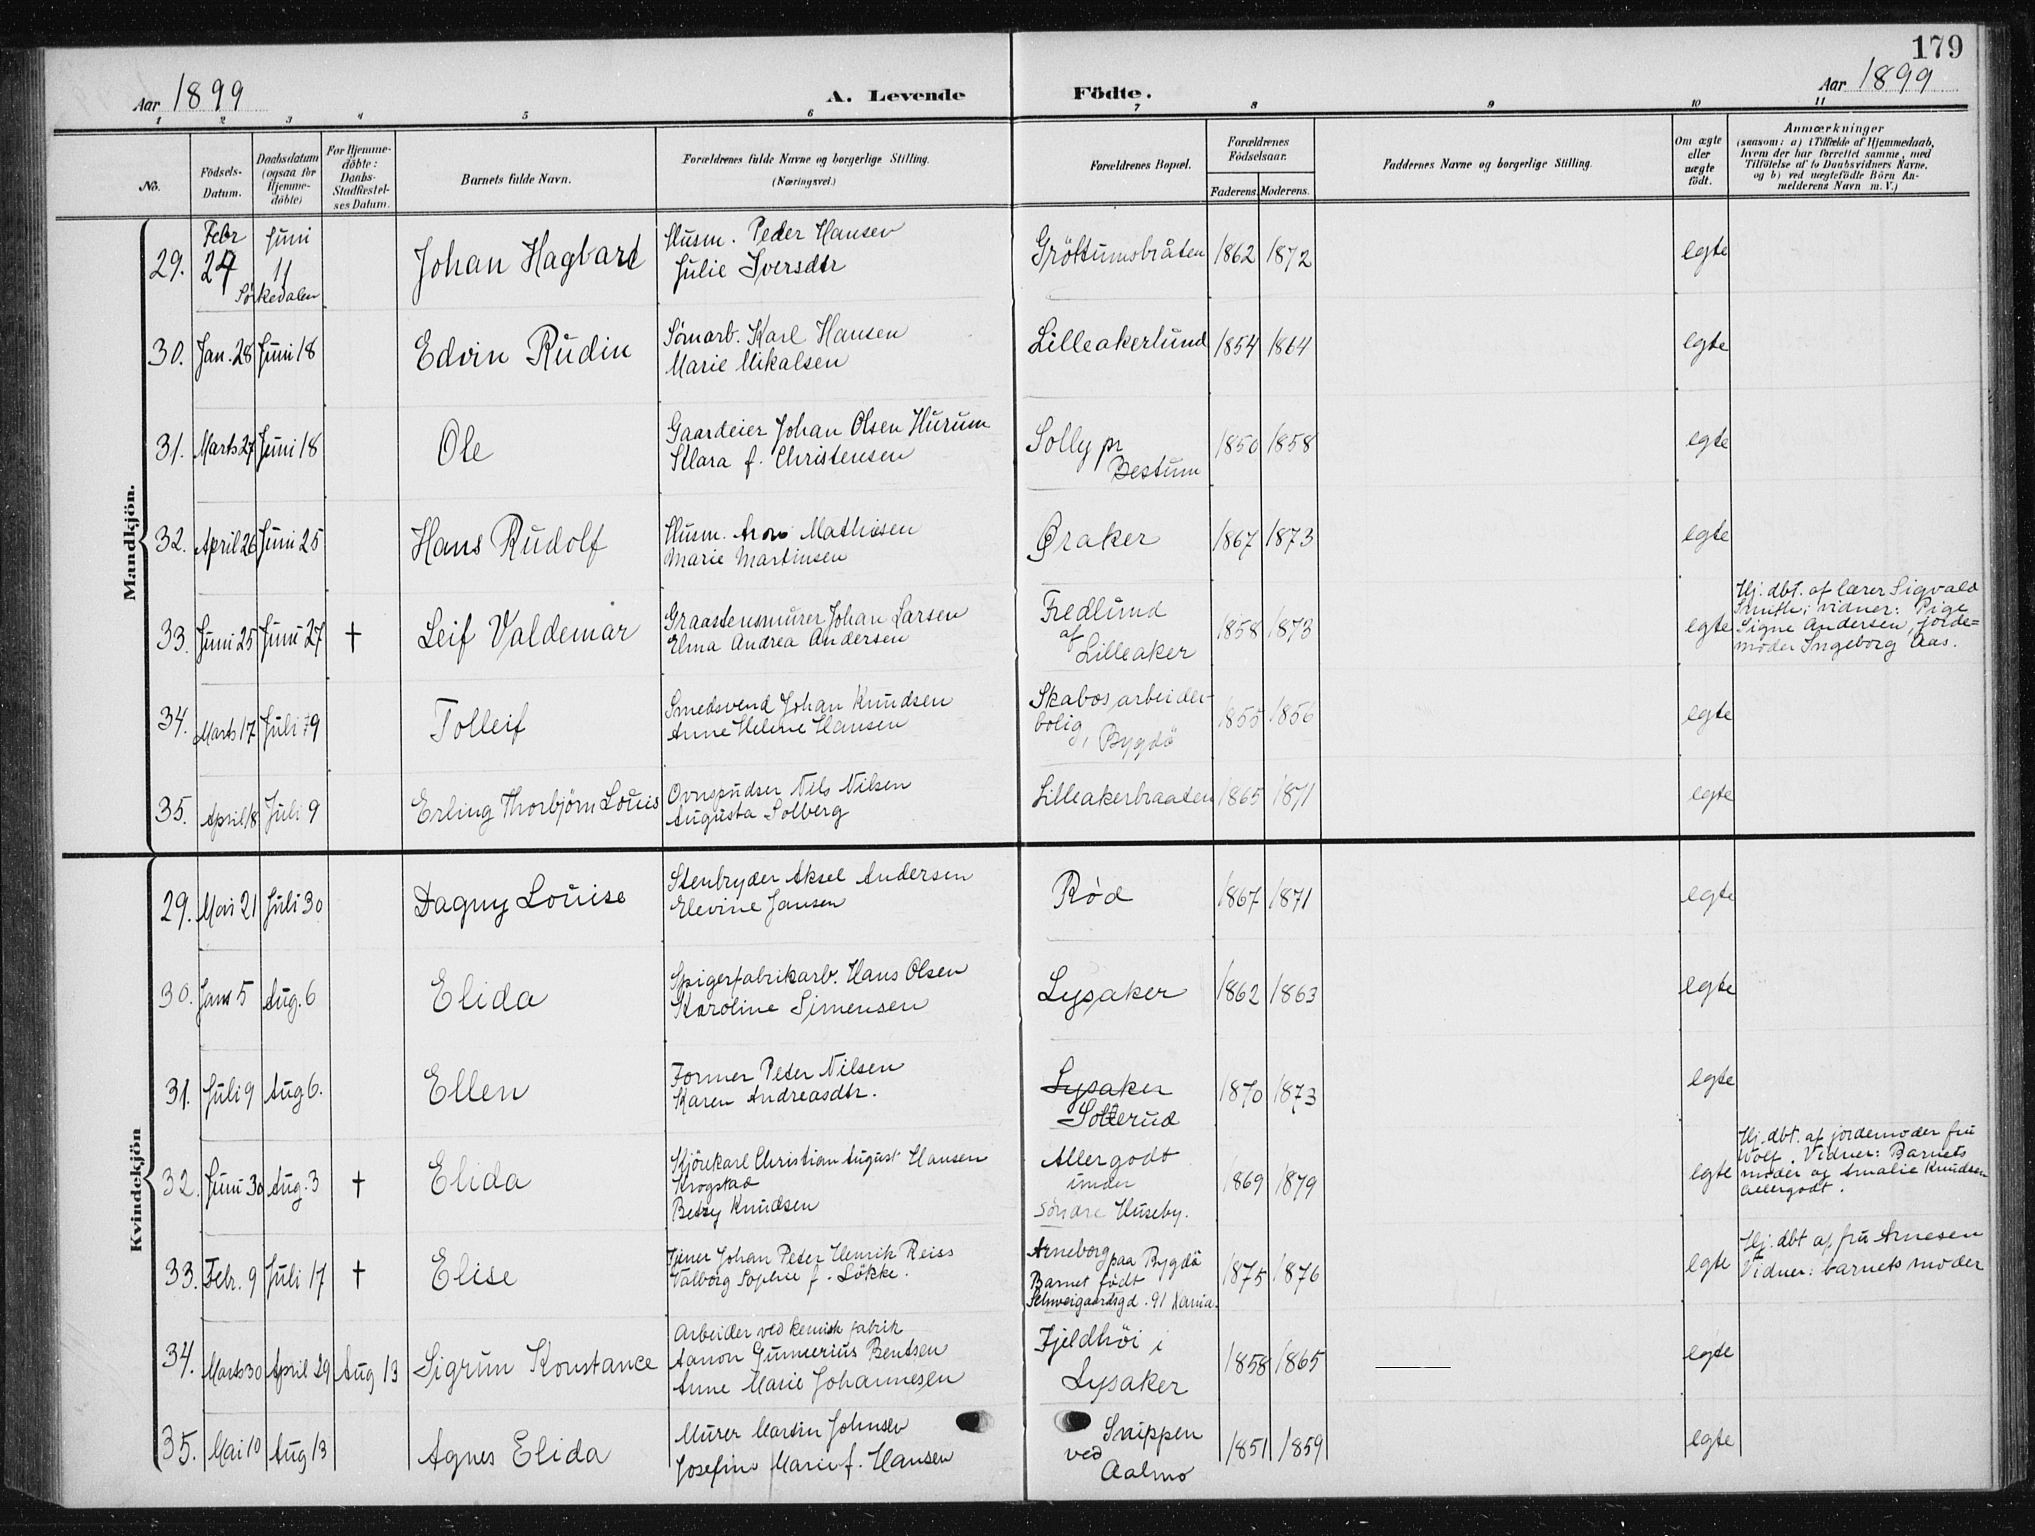 179
Aar 1899
A. Levende Födte.
Aar 1899
1 2 3 4 5 6 7 8 9 10 11
No.
Födsels-Datum.
Daabsdatum (ogsaa for Hjemme-döbte)
For Hjemme-döbte: Daabs-Stadfæstel-ses Datum.
Barnets fulde Navn.
Forældrenes fulde Navne og borgerlige Stilling.
(Næringsvei.)
Forældrenes Bopæl.
Forældrenes Födselsaar.
Faderens. Moderens.
Faddernes Navne og borgerlige Stilling.
Om ægte eller uægte födt.
Anmærkninger
(saasom: a) i Tilfælde af Hjemmedaab,
hvem der har forrettet samme, med
Tilföielse af to Daabsvidners Navne,
og b) ved uægtefödte Börn An-
melderens Navn m. V.)
Mandkjön.
29. Febr 27 Juni 11 Sørkedalen Johan Hagbart Husm. Peder Hansen
Julie Iversdtr Gröttumsbråten 1862 1872 egte
30. Jan. 28 Juni 18 Edvin Rudin Karl Hansen
Marie Mikalsen Lilleakerlund 1854 1864 egte
31. Marts 27 Juni 18 Ole Gaardeier Johan Olsen Hurum
Klara f. Christensen Solly pr
Bestum 1850 1858 egte
32. April 26 Juni 25 Hans Rudolf Husm. Aron Mathisen
Marie Martinsen Øraker 1867 1873 egte
33. Juni 25 Juni 27 † Leif Valdemar Graastensmurer Johan Larsen
Elma Andrea Andersen Fredlund
af
Lilleaker 1858 1873 egte Hj. dbt. af lærer Sigvald
Smith; vidner: Pige
Signe Andersen, jorde=
moder Ingeborg Aas.
34. Marts 17 Juli 9 Tolleif Smedsvend Johan Knudsen
Anne Helene Hansen Skabos arbeider-
bolig, Bygdö 1855 1856 egte
35. April 18 Juli 9 Erling Thorbjörn Louis Ovnspudser Nils Nilsen
Augusta Solberg Lilleakerbraaten 1865 1871 egte
Kvindekjön
29. Mai 21 Juli 30 Dagny Louise Stenbryder Aksel Andersen
Elevine Jansen Rød 1867 1871 egte
30. 5 Aug. 6 Elida Spigerfabrikarb. Hans Olsen
Karoline Simensen Lysaker 1862 1863 egte
31. Juli 9 Aug 6. Ellen Former Peter Nilsen
Karen Andreasdtr. Lysaker
Sollerud 1870 1873 egte
32. Juni 30 Aug. 3 † Elida Kjörekarl Christian August Hansen
Krogstad
Betzy Knudsen Allergodt
under
söndre Huseby. 1869 1879 egte Hj. dbt. af jordemoder fru
Wolf. Vidner: Barnets
moder og Amalie Knudsen
Allergodt.
33. Febr. 9 Juli 17 † Elise Tjener Johan Peter Henrik Reiss
Valborg Sophie f. Lökke. Arneborg paa Bygdö
Barnet födt
Schweigaardsgd. 91 Xania. 1875 1876 egte Hj. dbt af fru Arnesen
Vidner: barnets moder
34. Marts 30 April 29 Aug 13 Sigrun Konstance Arbeider ved kemisk fabrik
Aanon Gunnerius Bentsen
Anne Marie Johannesen Fjeldhöi i
Lysaker 1858 1865 egte
35. Mai 10 Aug 13 Agnes Elida Murer Martin Johnsen
Josefine Marie f. Hansen Snippen
ved
Aalmo 1851 1859 egte